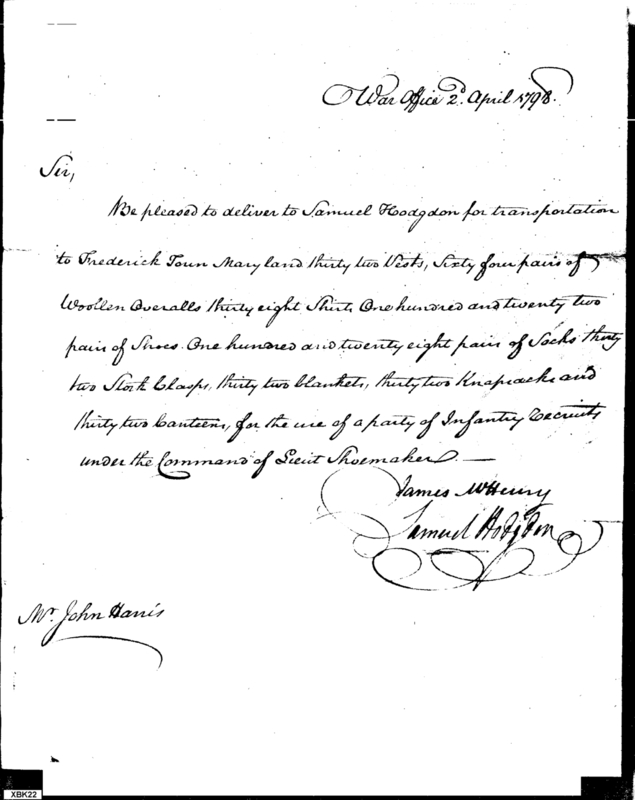 War Office 2d. April 1798.
Sir,
Be pleased to deliver to Samuel Hodgdon for transportation
to Frederick Town Maryland thirty two Vests, Sixty four pairs of
Woollen Overalls thirty eight Shirts One hundred and twenty two
pair of Shoes One hundred and twenty eight pairs of Socks thirty
two Stock Clasps, thirty two blankets, thirty two Knapsacks and
thirty two Canteens, for the use of a party of Infantry Recruits
under the Command of Lieut Shoemaker. —
James McHenry
Samuel Hodgdon
Mr. John Harris
XBK22